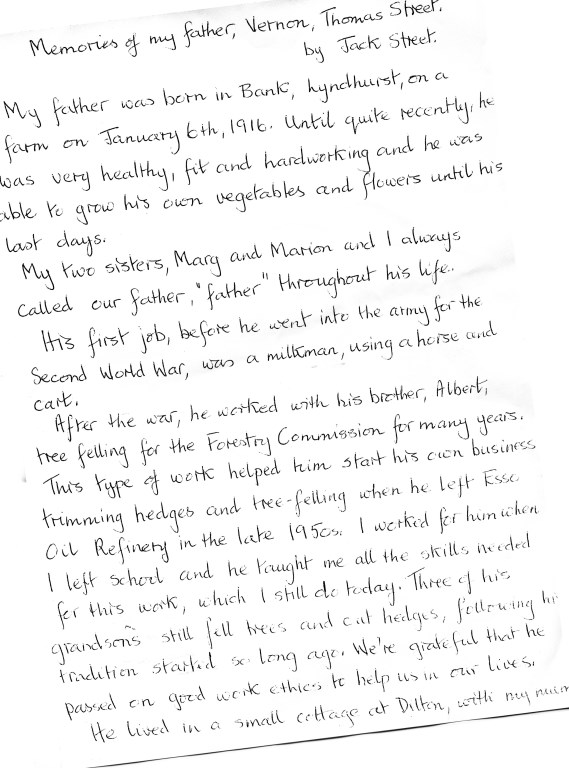 Memories of my father, Vernon, Thomas Street.
by Jack Street.
My father was born in Bank, Lyndhurst, on a
farm on January 6th, 1916. Until quite recently, he
was very healthy, fit and hardworking and he was
able to grow his own vegetables and flowers until his
last days.
My two sisters, Mary and Marion and I always
called our father, "father" throughout his life.
His first job, before he went into the army for the
Second World War, was a milkman, using a horse and
cart.
After the war, he worked with his brother, Albert,
tree felling for the Forestry Commission for many years.
This type of work helped him start his own business
trimming hedges and tree-felling when he left Esso
Oil Refinery in the late 1950s. I worked for him when
I left school and he taught me all the skills needed
for this work, which I still do today. Three of his
grandsons still fell trees and cut hedges, following hi
tradition started so long ago. We're grateful that he
passed on good work ethics to help us in our lives.
He lived in a small cottage at Dilton, with my mum